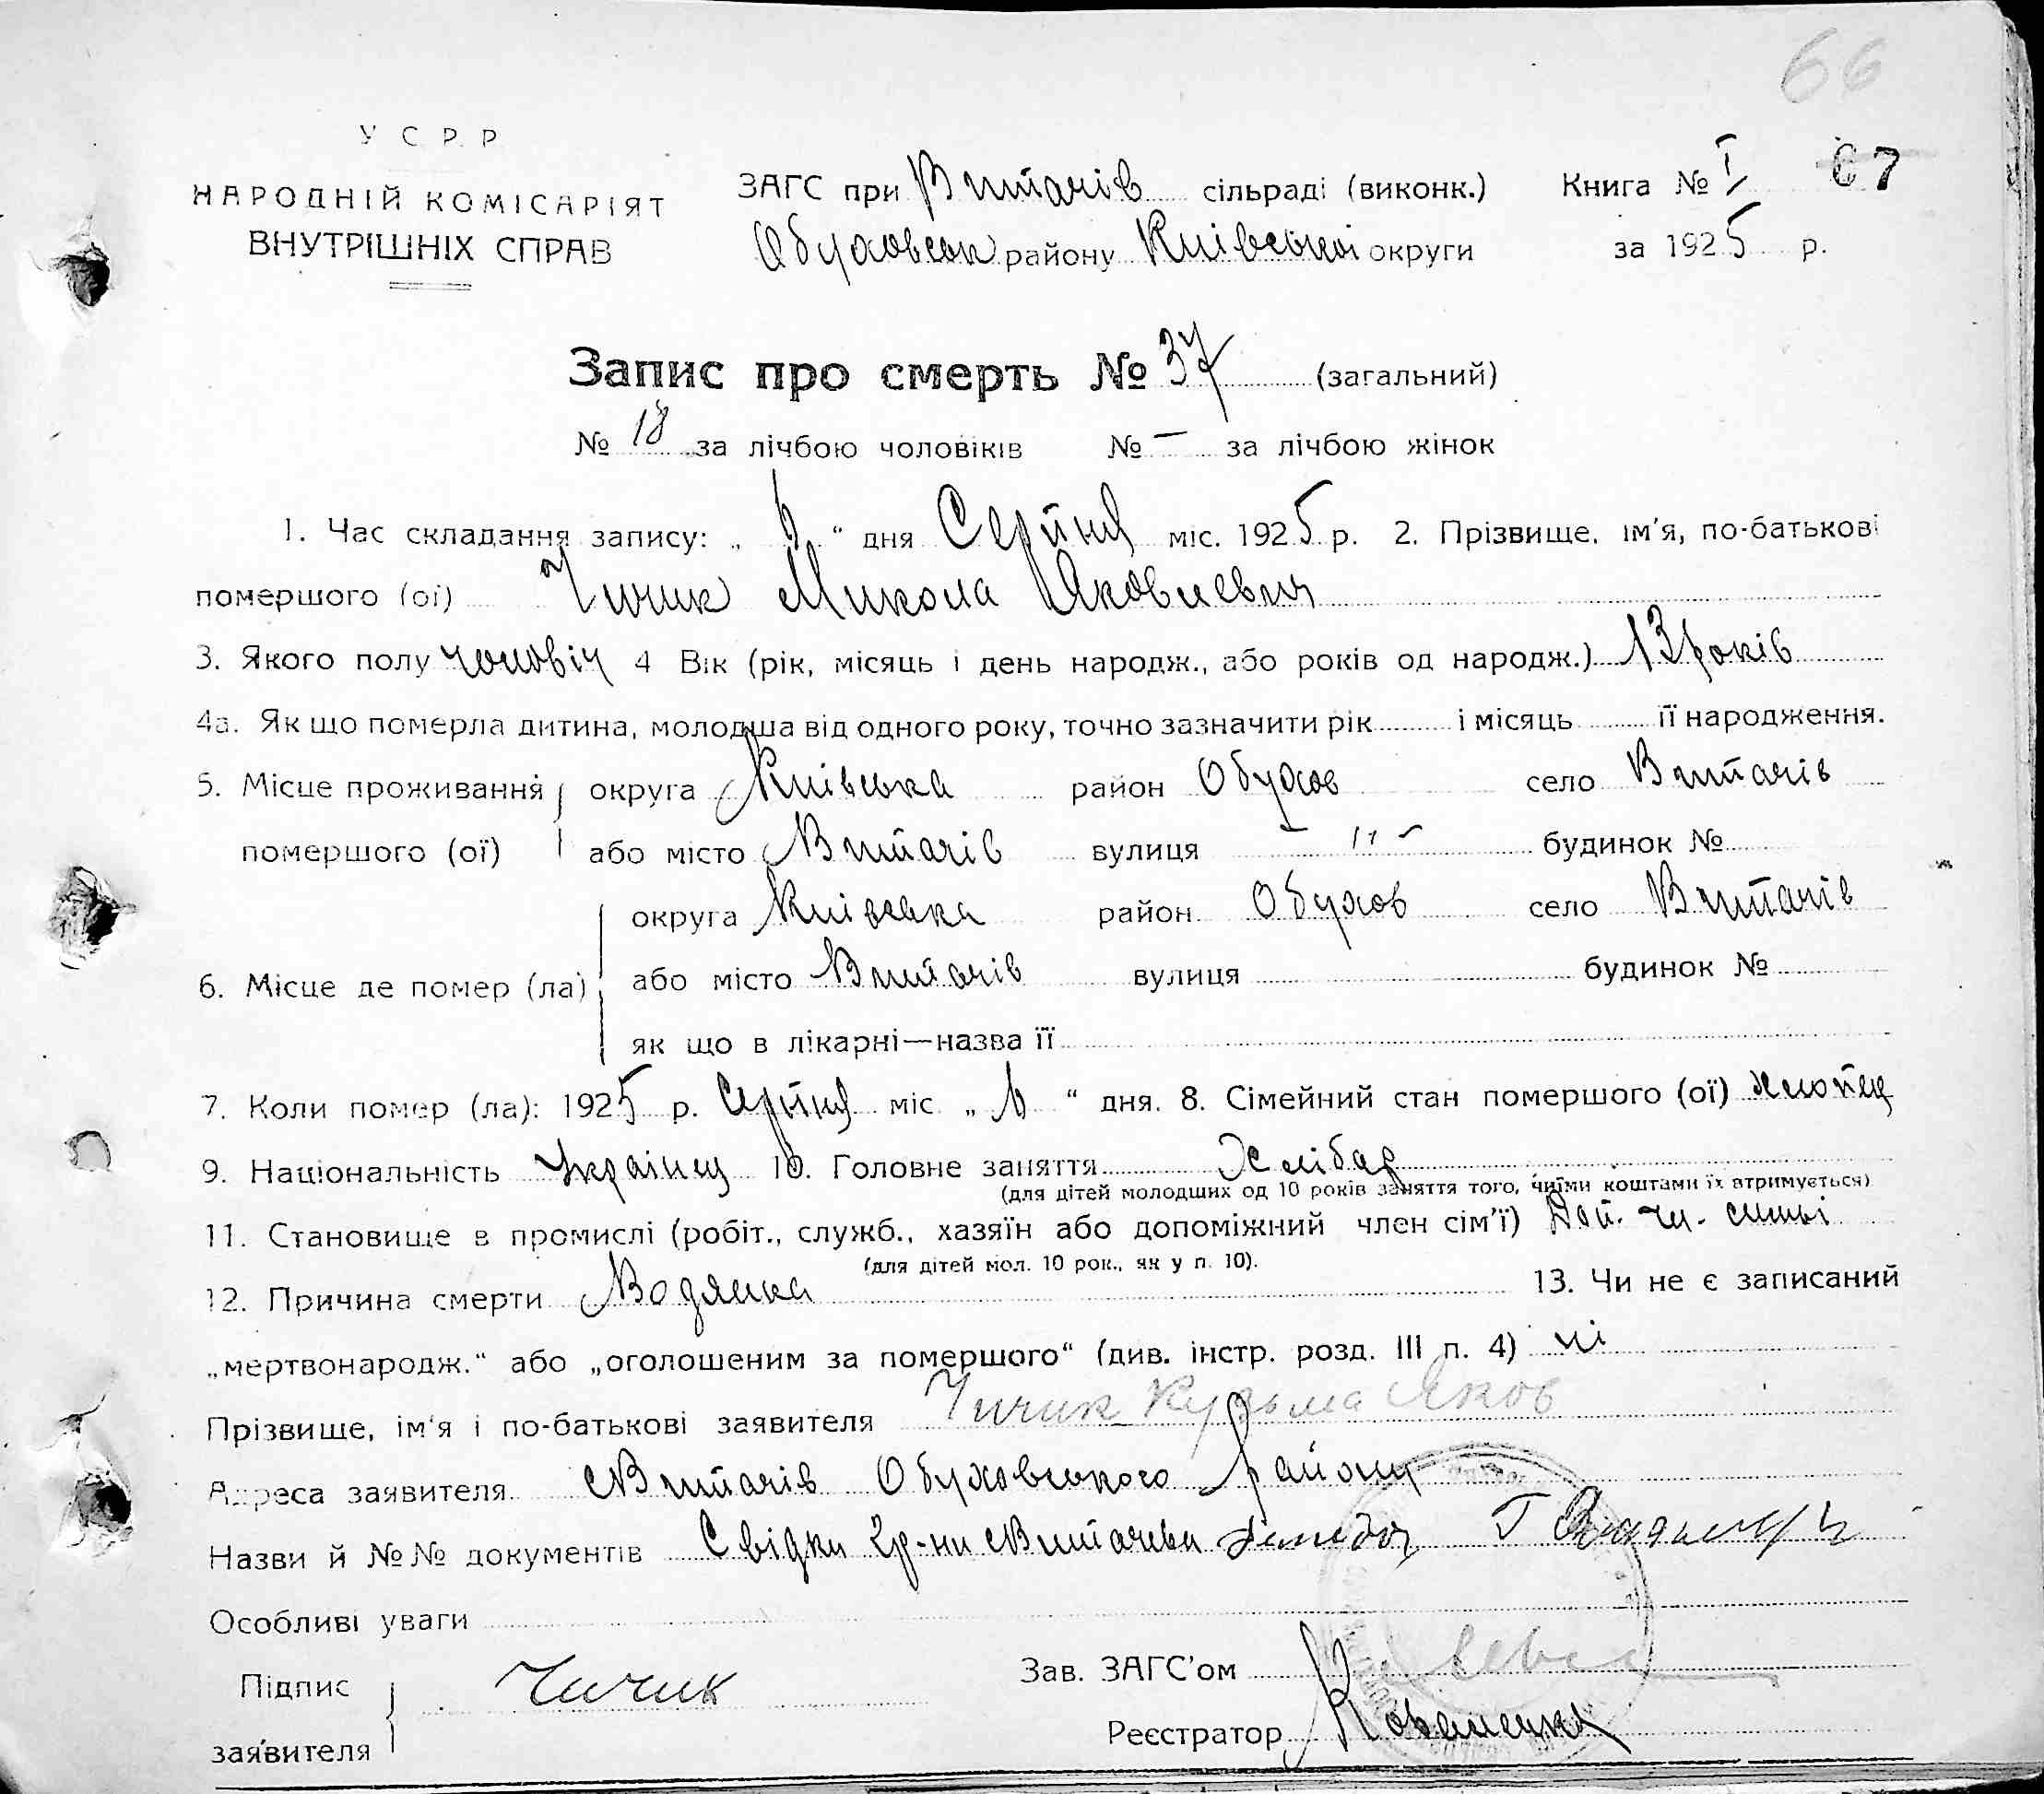 66
У С Р. Р
НАРОДНІЙ КОМІСАРІЯТ
ВНУТРІШНІХ СПРАВ
ЗАГС при Витачів сільраді (виконк.) Книга № I 67
Обуховськ району Київської округи за 1925 р.
Запис про смерть № 37 (загальний)
№ 18 за лічбою чоловіків № — за лічбою жінок
1. Час складання запису: „ “ дня Серпня міс. 1925 р. 2. Прізвище, ім'я, по-батькові
помершого (ої) Чичик Микола Яковлевич
3. Якого полу чоловіч 4 Вік (рік, місяць і день народж., або років од народж.) 13 років
4а. Як що померла дитина, молодша від одного року, точно зазначити рік і місяць її народження.
5. Місце проживання округа Київська район Обухов село Витачів
помершого (ої) або місто Витачів вулиця — " — будинок №
округа Київська район Обухов село Витачів
6. Місце де помер (ла) або місто Витачів вулиця будинок №
як що в лікарні—назва її
7. Коли помер (ла): 1925 р. Серпня міс „ “ дня. 8. Сімейний стан помершого (ої) хлопец
9. Національність Українец 10. Головне заняття Хлібор
(для дітей молодших од 10 років заняття того, чиїми коштами їх втримується)
11. Становище в промислі (робіт., служб., хазяїн або допоміжний член сім'ї) Доп. чл. симьі
(для дітей мол. 10 рок., як у п. 10).
12. Причина смерти Водянка 13. Чи не є записаний
„мертвонародж.“ або „оголошеним за помершого“ (див. інстр. розд. III п. 4) ні
Прізвище, ім'я і по-батькові заявителя Чичик Кузьма Яков
Адреса заявителя Витачів Обуховського району
Назви й №№ документів Свідки гр-ни Витачева
Особливі уваги
Підпис Чичик Зав. ЗАГС'ом
заявителя Реєстратор